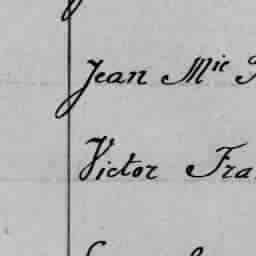 Jean Mie
Victor Fra